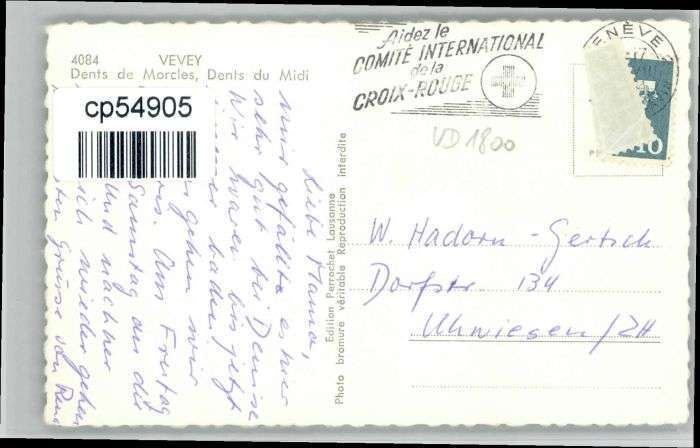 4084 VEVEY
Dents de Morcles, Dents du Midi
cp54905
Aidez le
COMITÉ INTERNATIONAL
de la
CROIX-ROUGE
ENÈVE
10
VD 1800
Liebe Mama,
mir gefällts es hier
sehr gut bei Denise
Wir waren bis jetzt
immer baden
gehen wir
Am Freitag
Samstag an die
Und nachher
ich wieder gehen
ten Grüsse von
Edition Perrochet Lausanne
Photo bromure véritable Reproduction interdite
W. Hadorn-Gertsch
Dorfstr. 134
Uhwiesen/ZH